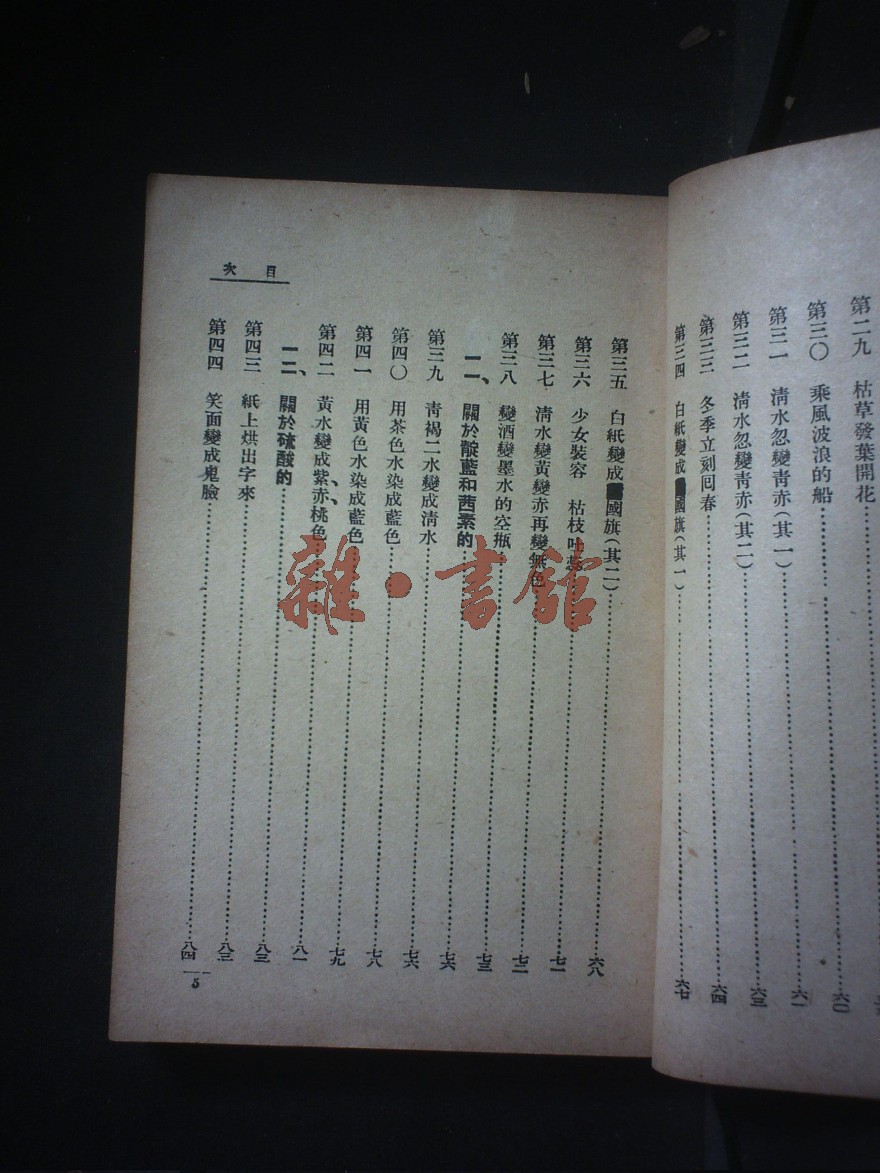 第二九 枯草發葉開花
第三〇 乘風波浪的船……六〇
第三一 清水忽變青赤(其一)……六一
第三二 清水忽變青赤(其二)……六三
第三三 冬季立刻回春……六四
第三四 白紙變成國旗(其一)……六七
目次
第三五 白紙變成國旗(其二)……六八
第三六 少女裝容 枯枝吐蕊……七一
第三七 清水變黃變赤再變無色……七二
第三八 變酒變墨水的空瓶……七三
一一、關於靛藍和茜素的……七六
第三九 青褐二水變成清水……七六
第四〇 用茶色水染成藍色……七八
第四一 用黃色水染成藍色……七九
第四二 黃水變成紫、赤、桃色……八一
一二、關於硫酸的……八三
第四三 紙上烘出字來……八三
第四四 笑面變成鬼臉……八四
5
雜·書館